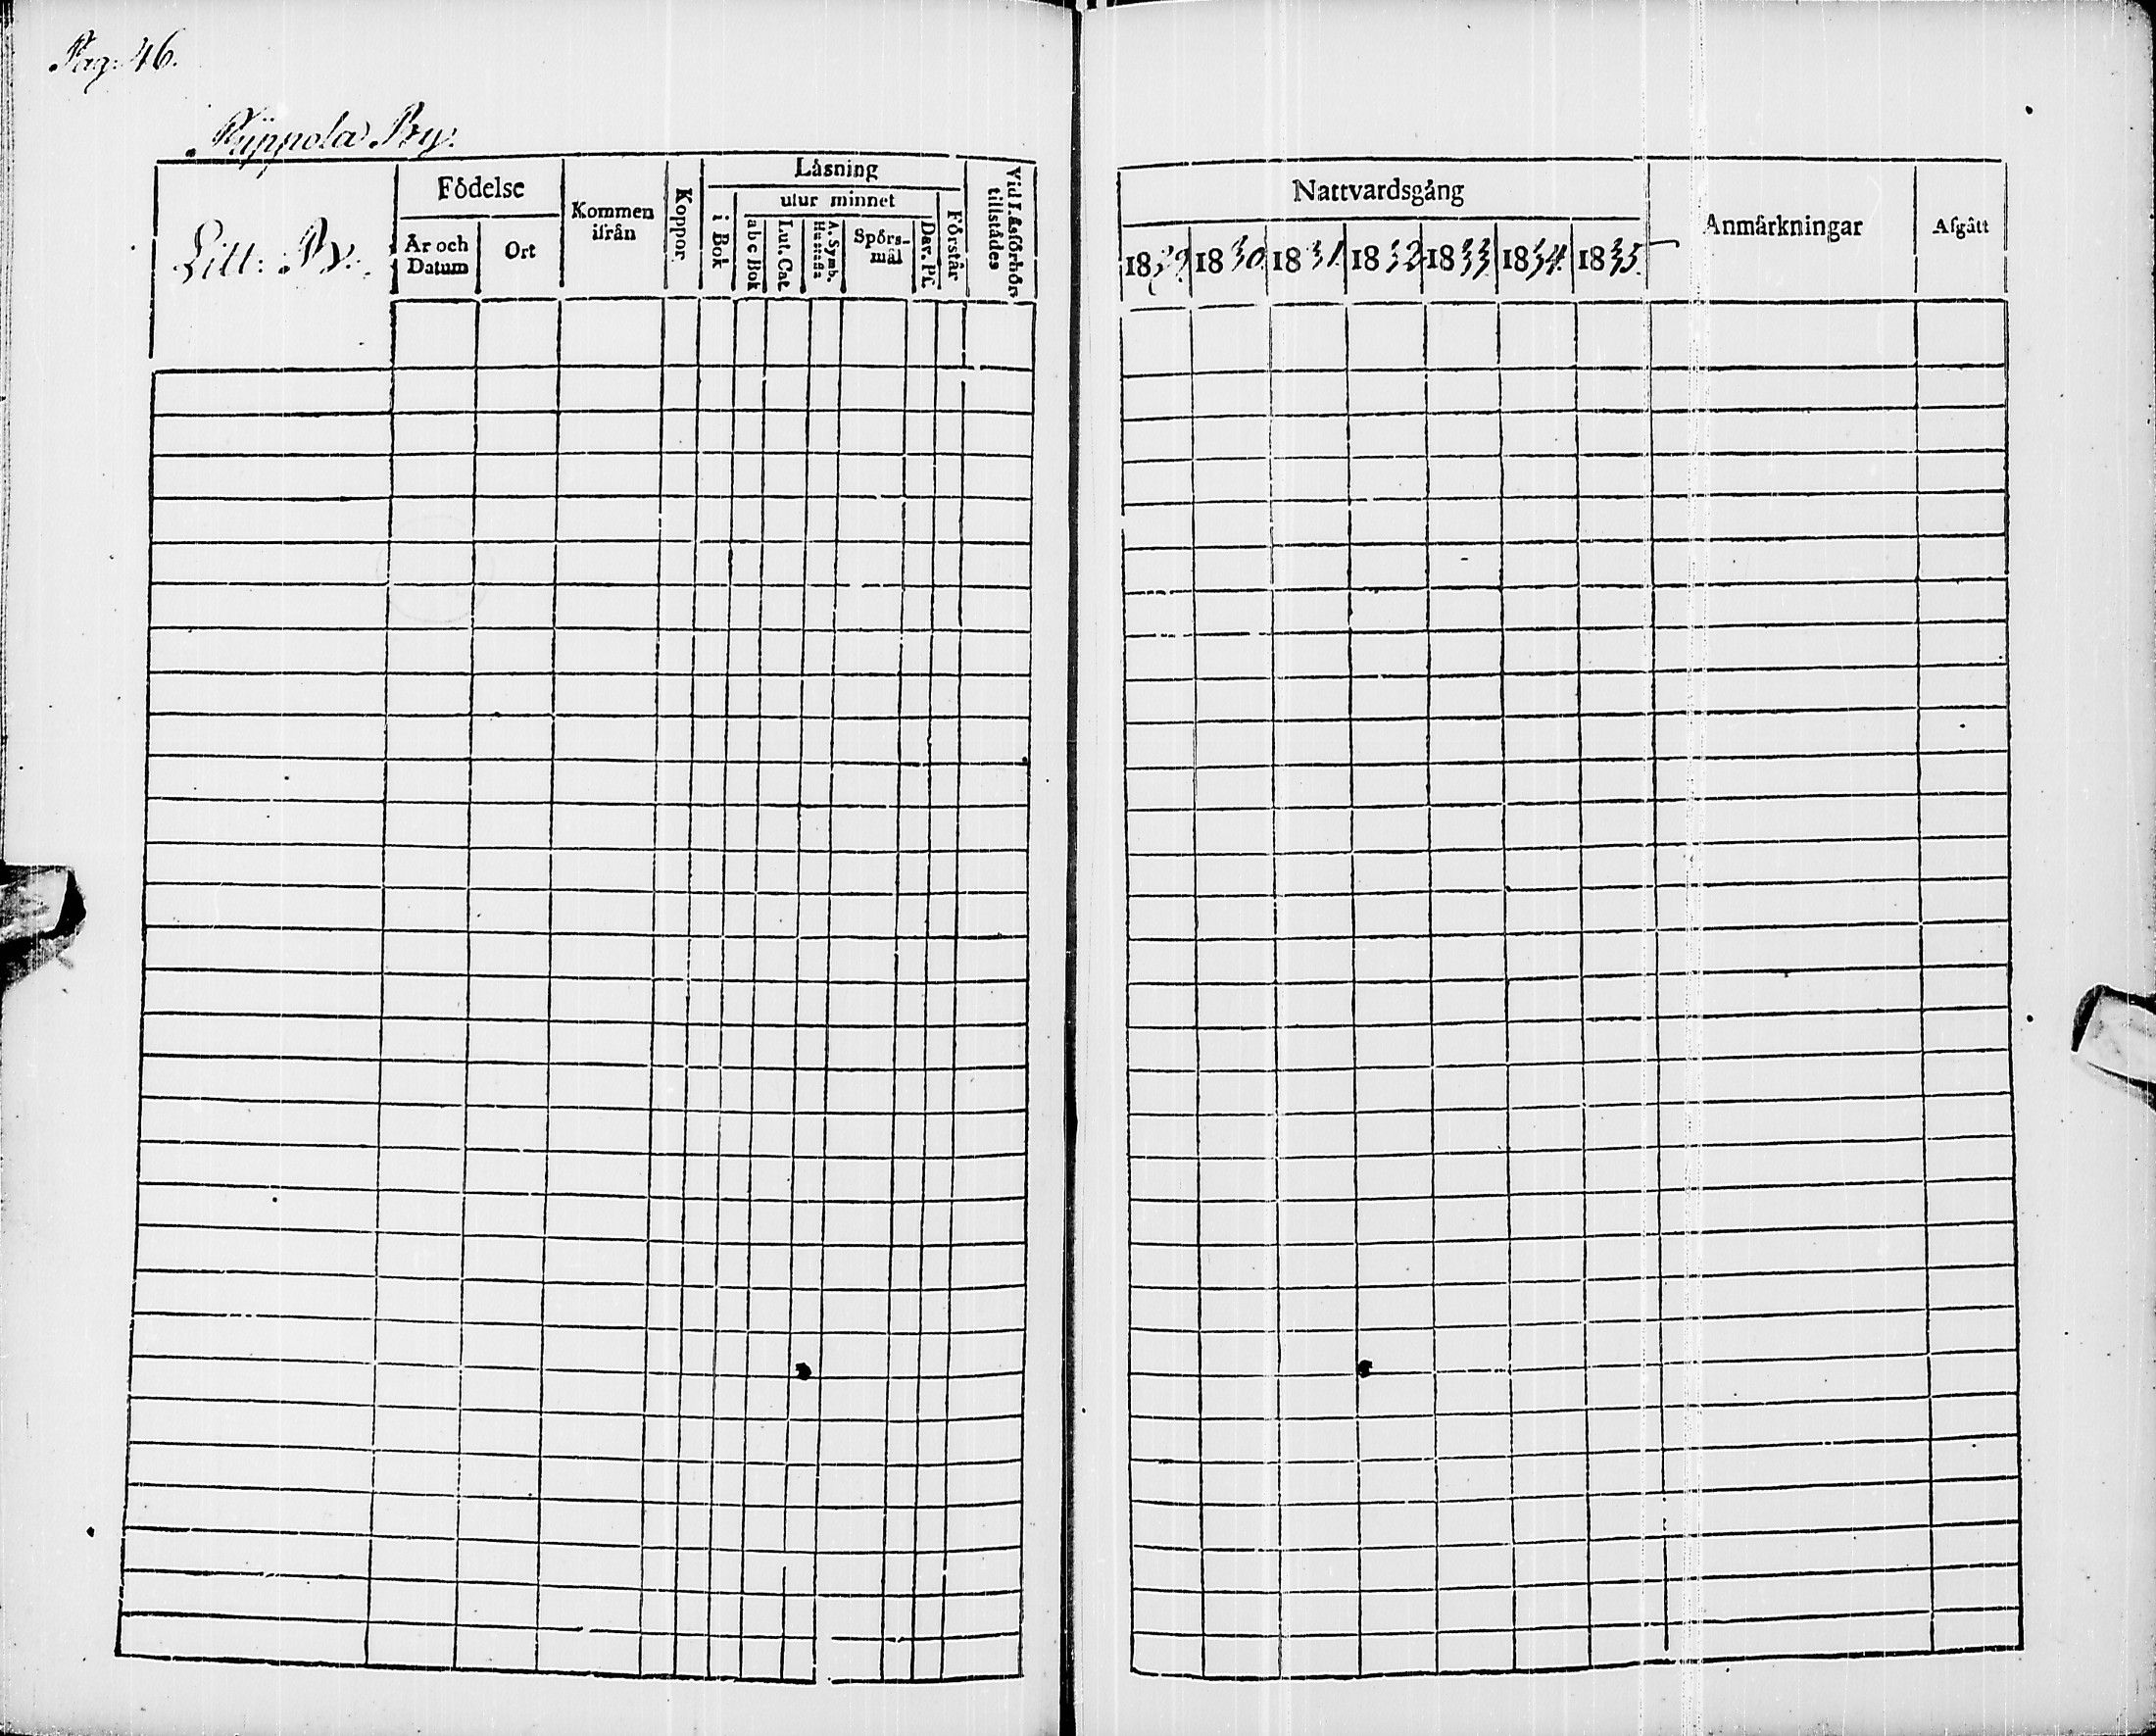 Pag. 46.
Pijppola By.
Litt: B.
Födelse
År och Datum
Ort
Kommen ifrån
Koppor
Läsning
i Bok
utur minnet
abc Bok
Lut. Cat.
A. Symb. Hustafla
Spörsmål
Dav. Ps.
Förstår
Vid Läsförhör tillstädes
Nattvardsgång
1829. 1830. 1831. 1832. 1833 1834. 1835.
Anmärkningar
Afgått